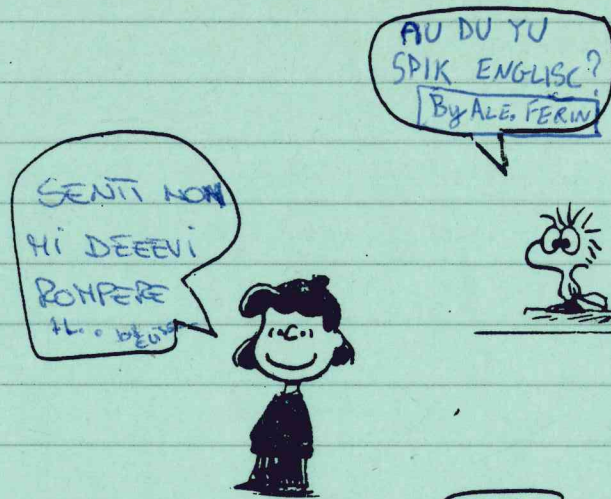 AU DU YU
SPIK ENGLISC?
By ALE. FERIN
SENTI NON
MI DEEEVI
ROMPERE